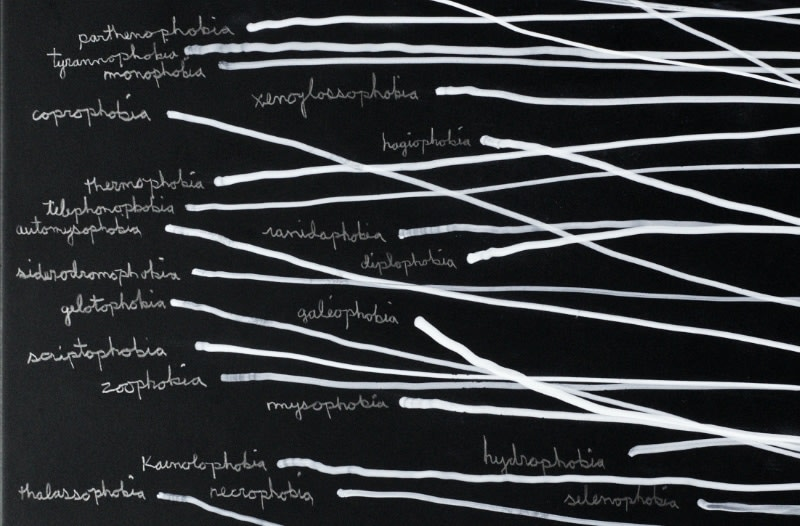 parthenophobia
tyrannophobia
monophobia
xenoglossophobia
coprophobia
hagiophobia
thermophobia
telephonophobia
automysophobia
ranidaphobia
diplophobia
siderodromophobia
gelotophobia
galéophobia
scriptophobia
zoophobia
mysophobia
Kainolophobia
hydrophobia
thalassophobia
necrophobia
selenophobia